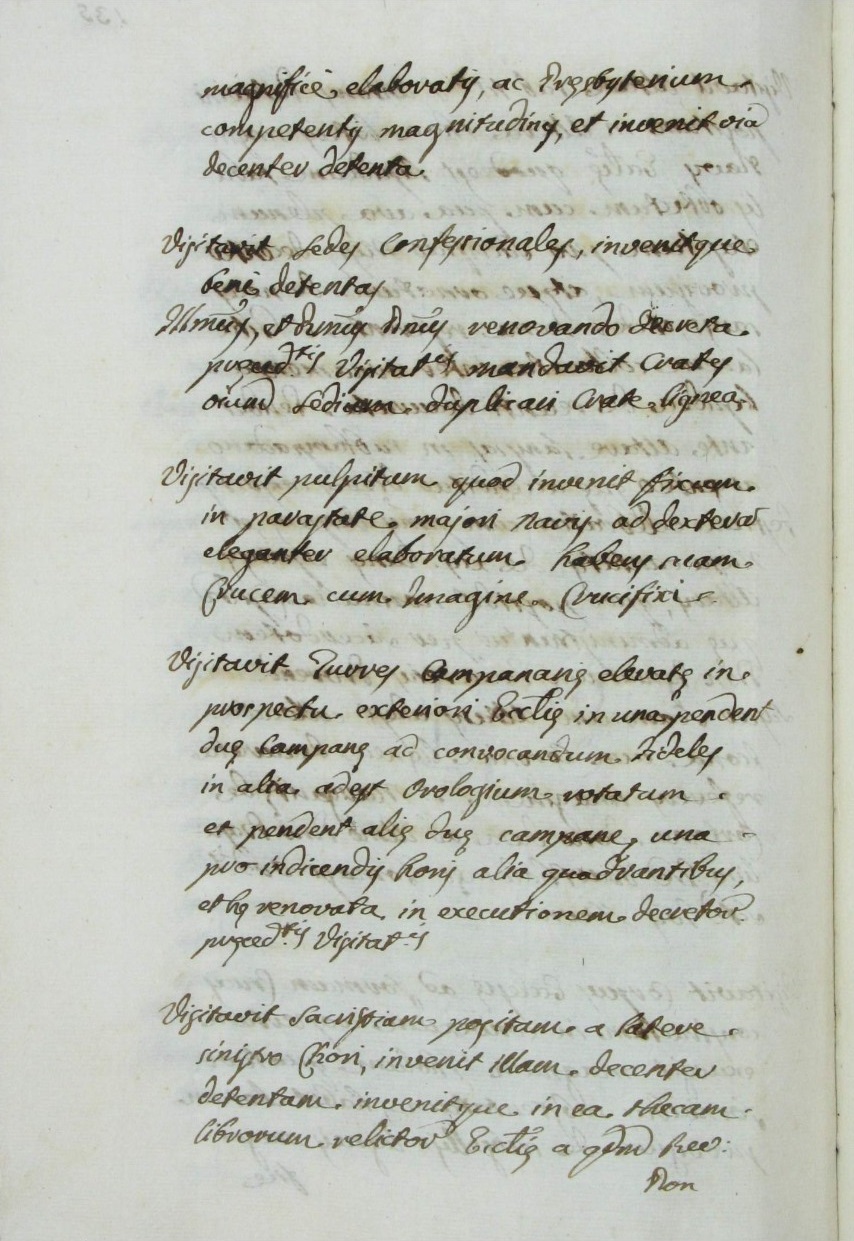 magnificè elaboratis, ac Presbyterium
competentis magnitudinis, et invenit oia
decenter detenta
Visitavit Sedes Confessionales, invenitque
benè detentas
Illm̃us, et Rmus Dnũs renovando decreta
præced.tis Visitat.is mandavit Crates
oiumd Sedium duplicari Crate lignea
Visitavit pulpitum quod invenit fixum
in parastate majori navis ad dexteram̃
eleganter elaboratum habens suam
Crucem cum Imagine Crucifixi
Visitavit Turres Campanariæ elevatæ in
prospectu exteriori Ecclíæ in una pendent
duæ Campanæ ad convocandum Fideles
in alia adest Orologium rotatum
et pendent aliæ duæ campane, una
pro indicendis horis alia quadrantibus,
et hæ renovata in executionem decretor.
præced.tis Visitat.is
Visitavit Sacristiam positam a latere
sinistro Chori, invenit illam decenter
detentam invenitque in ea thecam
librorum relictor Ecclíæ a qdm̃ Rev:
Don
135